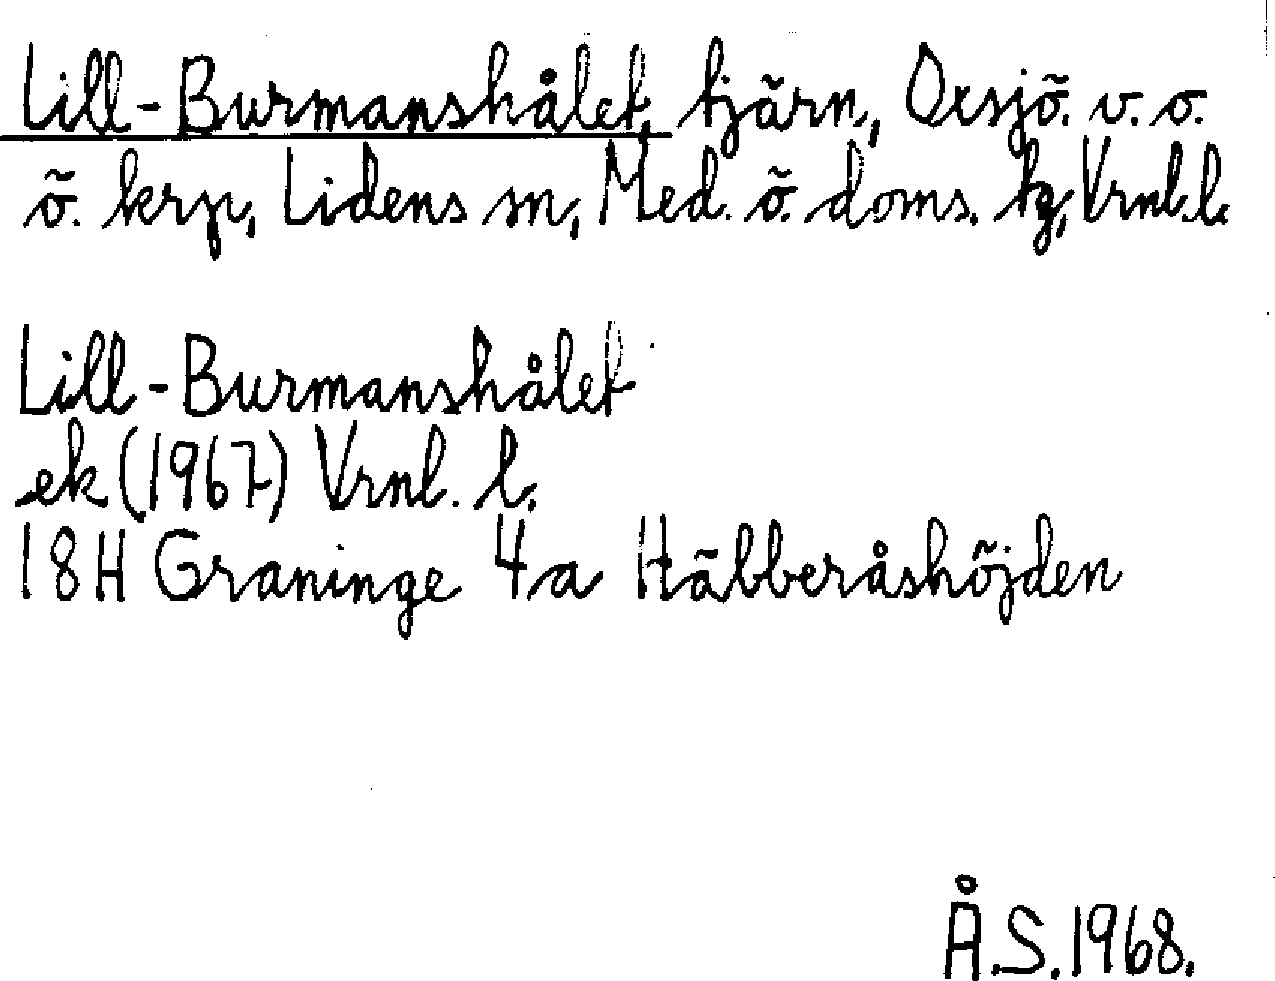 Lill-Burmanshålet, tjärn, Oxsjö. v. o.
ö. krp, Lidens sn, Med. ö. doms. tg, Vrnl.l.
Lill-Burmanshålet
ek (1967) Vrnl. l.
18H Graninge 4a Häbberåshöjden
Å.S. 1968.